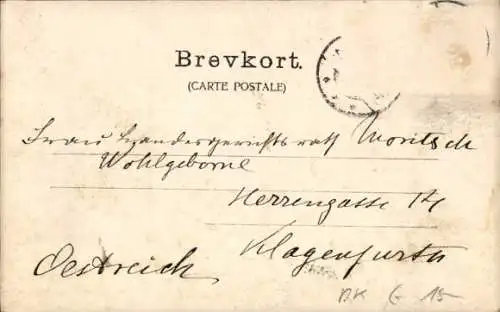 Brevkort.
(CARTE POSTALE)
Frau Landesgerichtsrath Moritsch
Wohlgeborne
Herrengasse 14
Klagenfurth
Oestreich
BK G 15